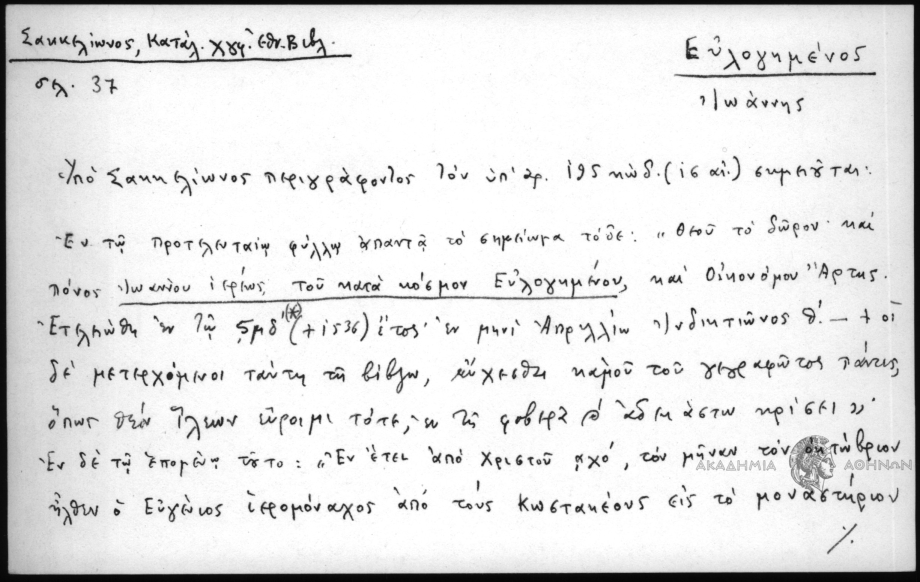 Σακκελίωνος, Κατάλ. χγφ. Ἐθν. Βιβλ.
σελ. 37
Εὐλογημένος
Ἰωάννης
Ὑπό Σακκελίωνος περιγράφοντος τόν ὑπ' ἀρ. 195 κώδ. (ις αἰ.) σημειοῦται:
Ἐν τῷ προτελευταίῳ φύλλῳ ἀπαντᾷ τό σημείωμα τόδε: „Θεοῦ τό δῶρον· καί
πόνος Ἰωαννίου ἱερέως, τοῦ κατά κόσμον Εὐλογημένου, καί Οἰκονόμου Ἄρτης.
Ἐτελειώθη ἐν τῷ ͵ζμδ' (*) (+1536) ἔτος· ἐν μηνί Ἀπριλλίω Ἰνδικτιῶνος θ'. — + οἱ
δέ μετερχόμενοι ταύτῃ τῇ βίβλω, εὔχεσθε κἀμοῦ τοῦ γεγραφῶτος πάντες,
ὅπως θεόν ἵλεων εὕροιμι τότε, ἐν τῇ φοβερᾷ ἀδεκάστω κρίσει”
Ἐν δέ τῷ ἑπομένῳ τοῦτο: „Ἐν ἔτει ἀπό Χριστοῦ ͵αχό, τόν μῆναν τόν ὀκτώβριον
ἦλθεν ὁ Εὐγένιος ἱερομόναχος ἀπό τούς Κωστακέους εἰς τό μοναστήριον
./.
ΑΚΑΔΗΜΙΑ ΑΘΗΝΩΝ